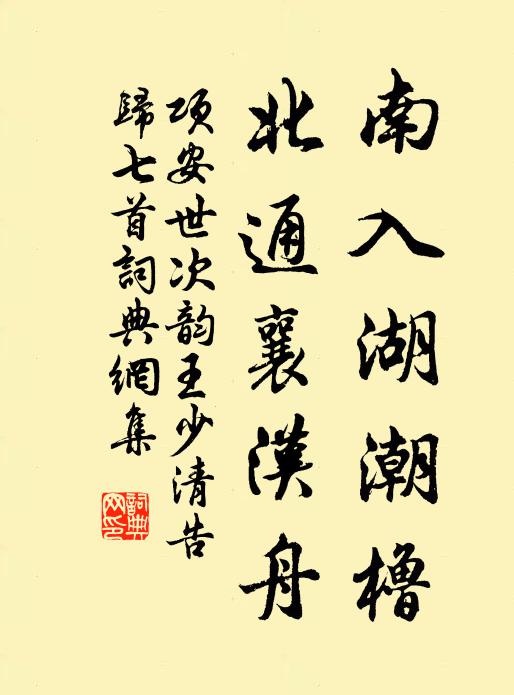 南入湖潮櫓
北通襄漢舟
項安世次韵王少清告
歸七首詞典網集
詞典網印